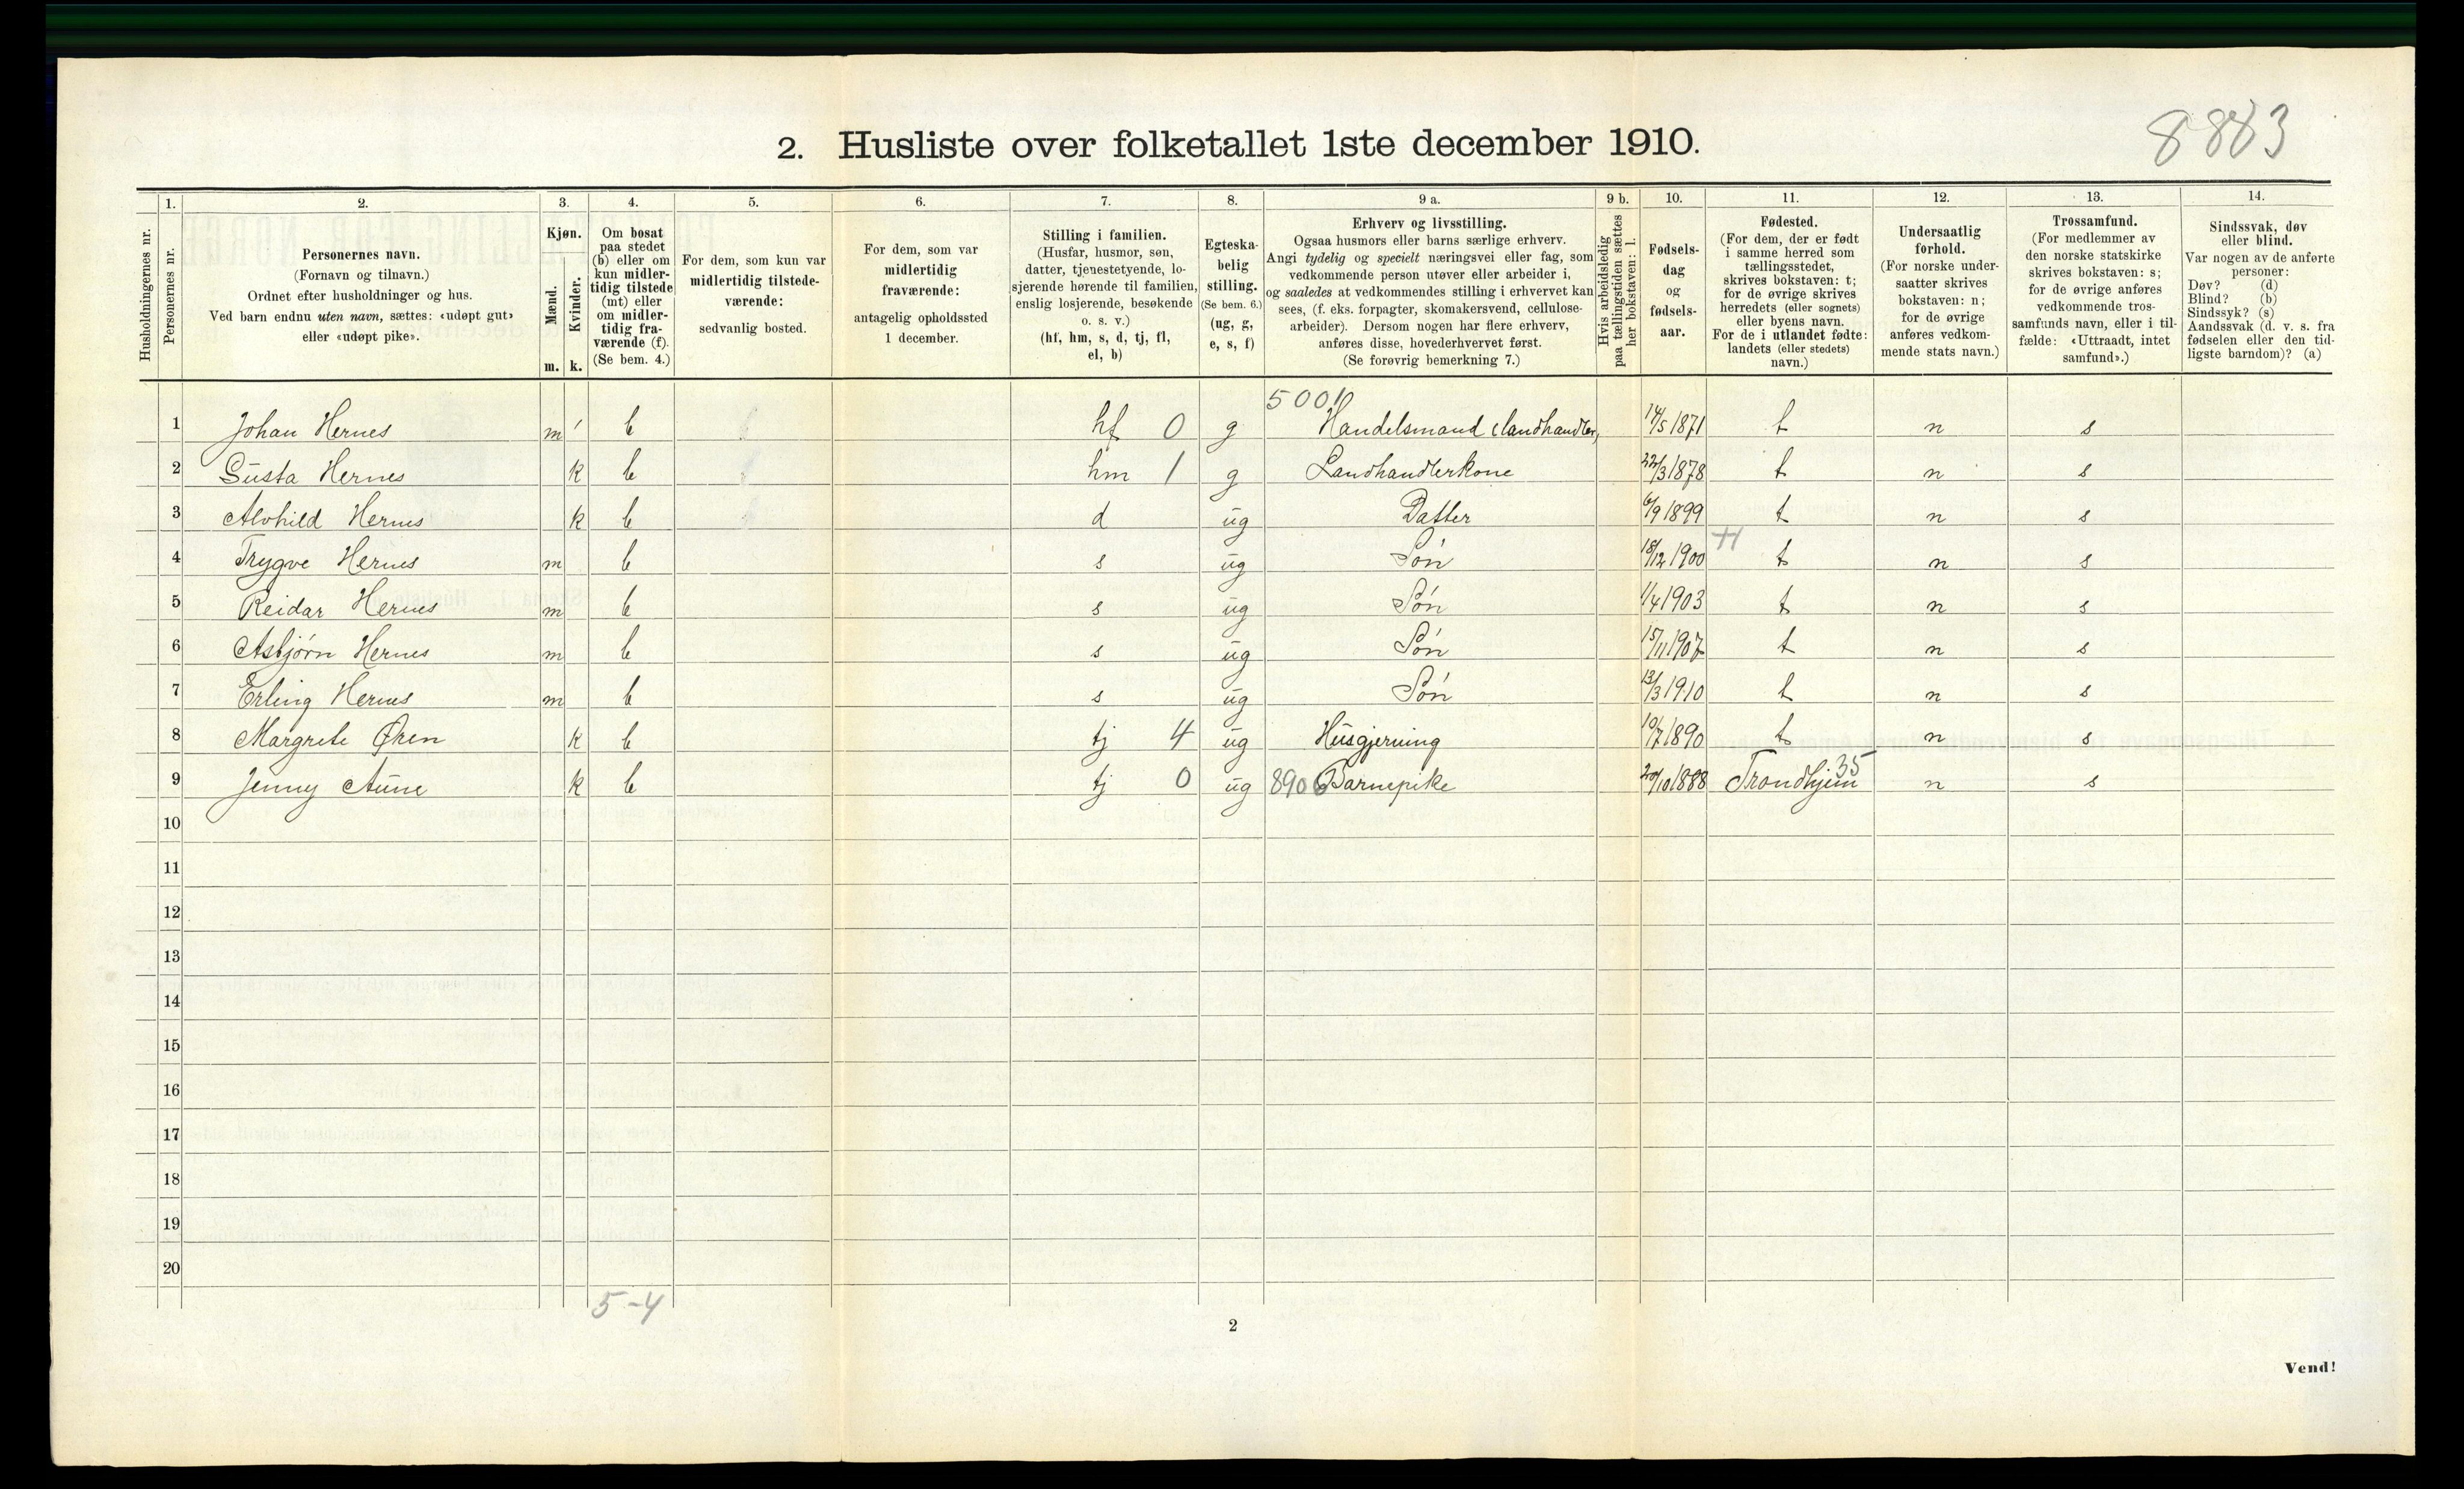 8883
2. Husliste over folketallet 1ste december 1910.
Husholdningernes nr.
1. Personernes nr.
2. Personernes navn.
(Fornavn og tilnavn.)
Ordnet efter husholdninger og hus.
Ved barn endnu uten navn, sættes: «udøpt gut»
eller «udøpt pike».
3. Kjøn.
Mænd. m.
Kvinder. k.
4. Om bosat
paa stedet
(b) eller om
kun midler-
tidig tilstede
(mt) eller
om midler-
tidig fra-
værende (f).
(Se bem. 4.)
5. For dem, som kun var
midlertidig tilstede-
værende:
sedvanlig bosted.
6. For dem, som var
midlertidig
fraværende:
antagelig opholdssted
1 december.
7. Stilling i familien.
(Husfar, husmor, søn,
datter, tjenestetyende, lo-
sjerende hørende til familien,
enslig losjerende, besøkende
o. s. v.)
(hf, hm, s, d, tj, fl,
el, b)
8. Egteska-
belig
stilling.
(Se bem. 6.)
(ug, g,
e, s, f)
9 a. Erhverv og livsstilling.
Ogsaa husmors eller barns særlige erhverv.
Angi tydelig og specielt næringsvei eller fag, som
vedkommende person utøver eller arbeider i,
og saaledes at vedkommendes stilling i erhvervet kan
sees, (f. eks. forpagter, skomakersvend, cellulose-
arbeider). Dersom nogen har flere erhverv,
anføres disse, hovederhvervet først.
(Se forøvrig bemerkning 7.)
9 b. Hvis arbeidsledig
paa tællingstiden sættes
her bokstaven: l.
10. Fødsels-
dag
og
fødsels-
aar.
11. Fødested.
(For dem, der er født
i samme herred som
tællingsstedet,
skrives bokstaven: t;
for de øvrige skrives
herredets (eller sognets)
eller byens navn.
For de i utlandet fødte:
landets (eller stedets)
navn.)
12. Undersaatlig
forhold.
(For norske under-
saatter skrives
bokstaven: n;
for de øvrige
anføres vedkom-
mende stats navn.)
13. Trossamfund.
(For medlemmer av
den norske statskirke
skrives bokstaven: s;
for de øvrige anføres
vedkommende tros-
samfunds navn, eller i til-
fælde: «Uttraadt, intet
samfund».)
14. Sindssvak, døv
eller blind.
Var nogen av de anførte
personer:
Døv? (d)
Blind? (b)
Sindssyk? (s)
Aandssvak (d. v. s. fra
fødselen eller den tid-
ligste barndom)? (a)
5001
1 Johan Hernes m b hf 0 g Handelsmand (landhandler) 14/5 1871 t n s
2 Gusta Hernes k b hm 1 g Landhandlerkone 22/3 1878 t n s
3 Alvhild Hernes k b d ug Datter 6/9 1899 t n s
4 Trygve Hernes m b s ug Søn 18/12 1900 t n s
5 Reidar Hernes m b s ug Søn 1/4 1903 t n s
6 Asbjørn Hernes m b s ug Søn 15/11 1907 t n s
7 Erling Hernes m b s ug Søn 13/3 1910 t n s
8 Margrete Øren k b tj 4 ug Husgjerning 10/7 1890 t n s
35
9 Jenny Aune k b tj 0 ug 8906 Barnepike 20/10 1888 Trondhjem n s
10
11
12
13
14
15
16
17
18
19
20
5-4
2
Vend!